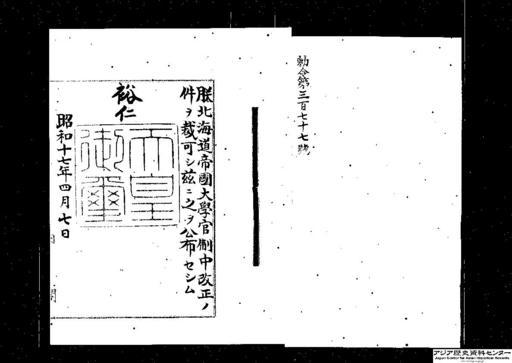 勅令第三百七十七號
朕北海道帝國大學官制中改正ノ
件ヲ裁可シ茲ニ之ヲ公布セシム
裕仁
天皇
御璽
昭和十七年四月七日
アジア歴史資料センター
Japan Center for Asian Historical Records